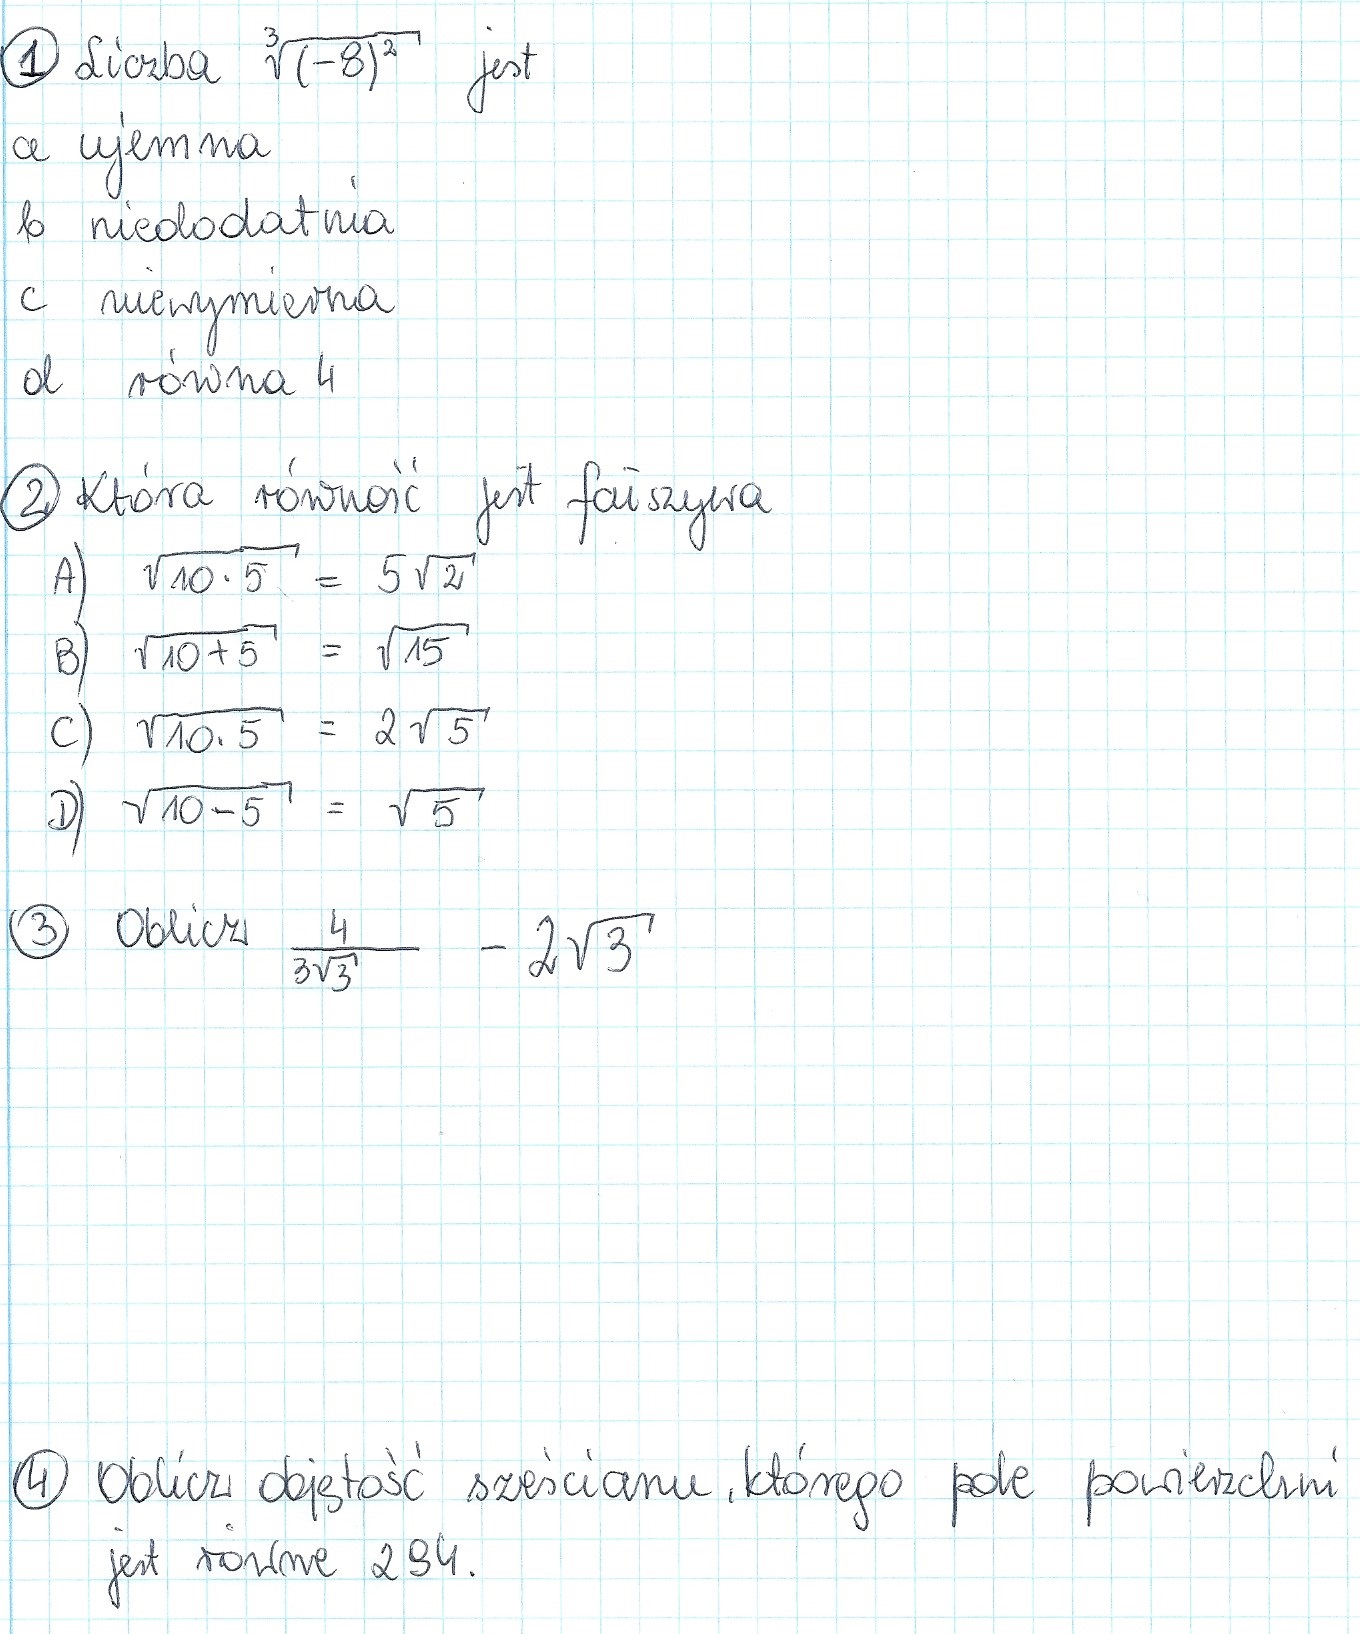 1 Liczba ∛(-8)² jest
a ujemna
b niedodatnia
c niewymierna
d równa 4
2 Która równość jest fałszywa
A) √10·5 = 5√2
B) √10+5 = √15
C) √10·5 = 2√5
D) √10-5 = √5
3 Oblicz 4/3√3 - 2√3
4 Oblicz objętość sześcianu, którego pole powierzchni
jest równe 294.